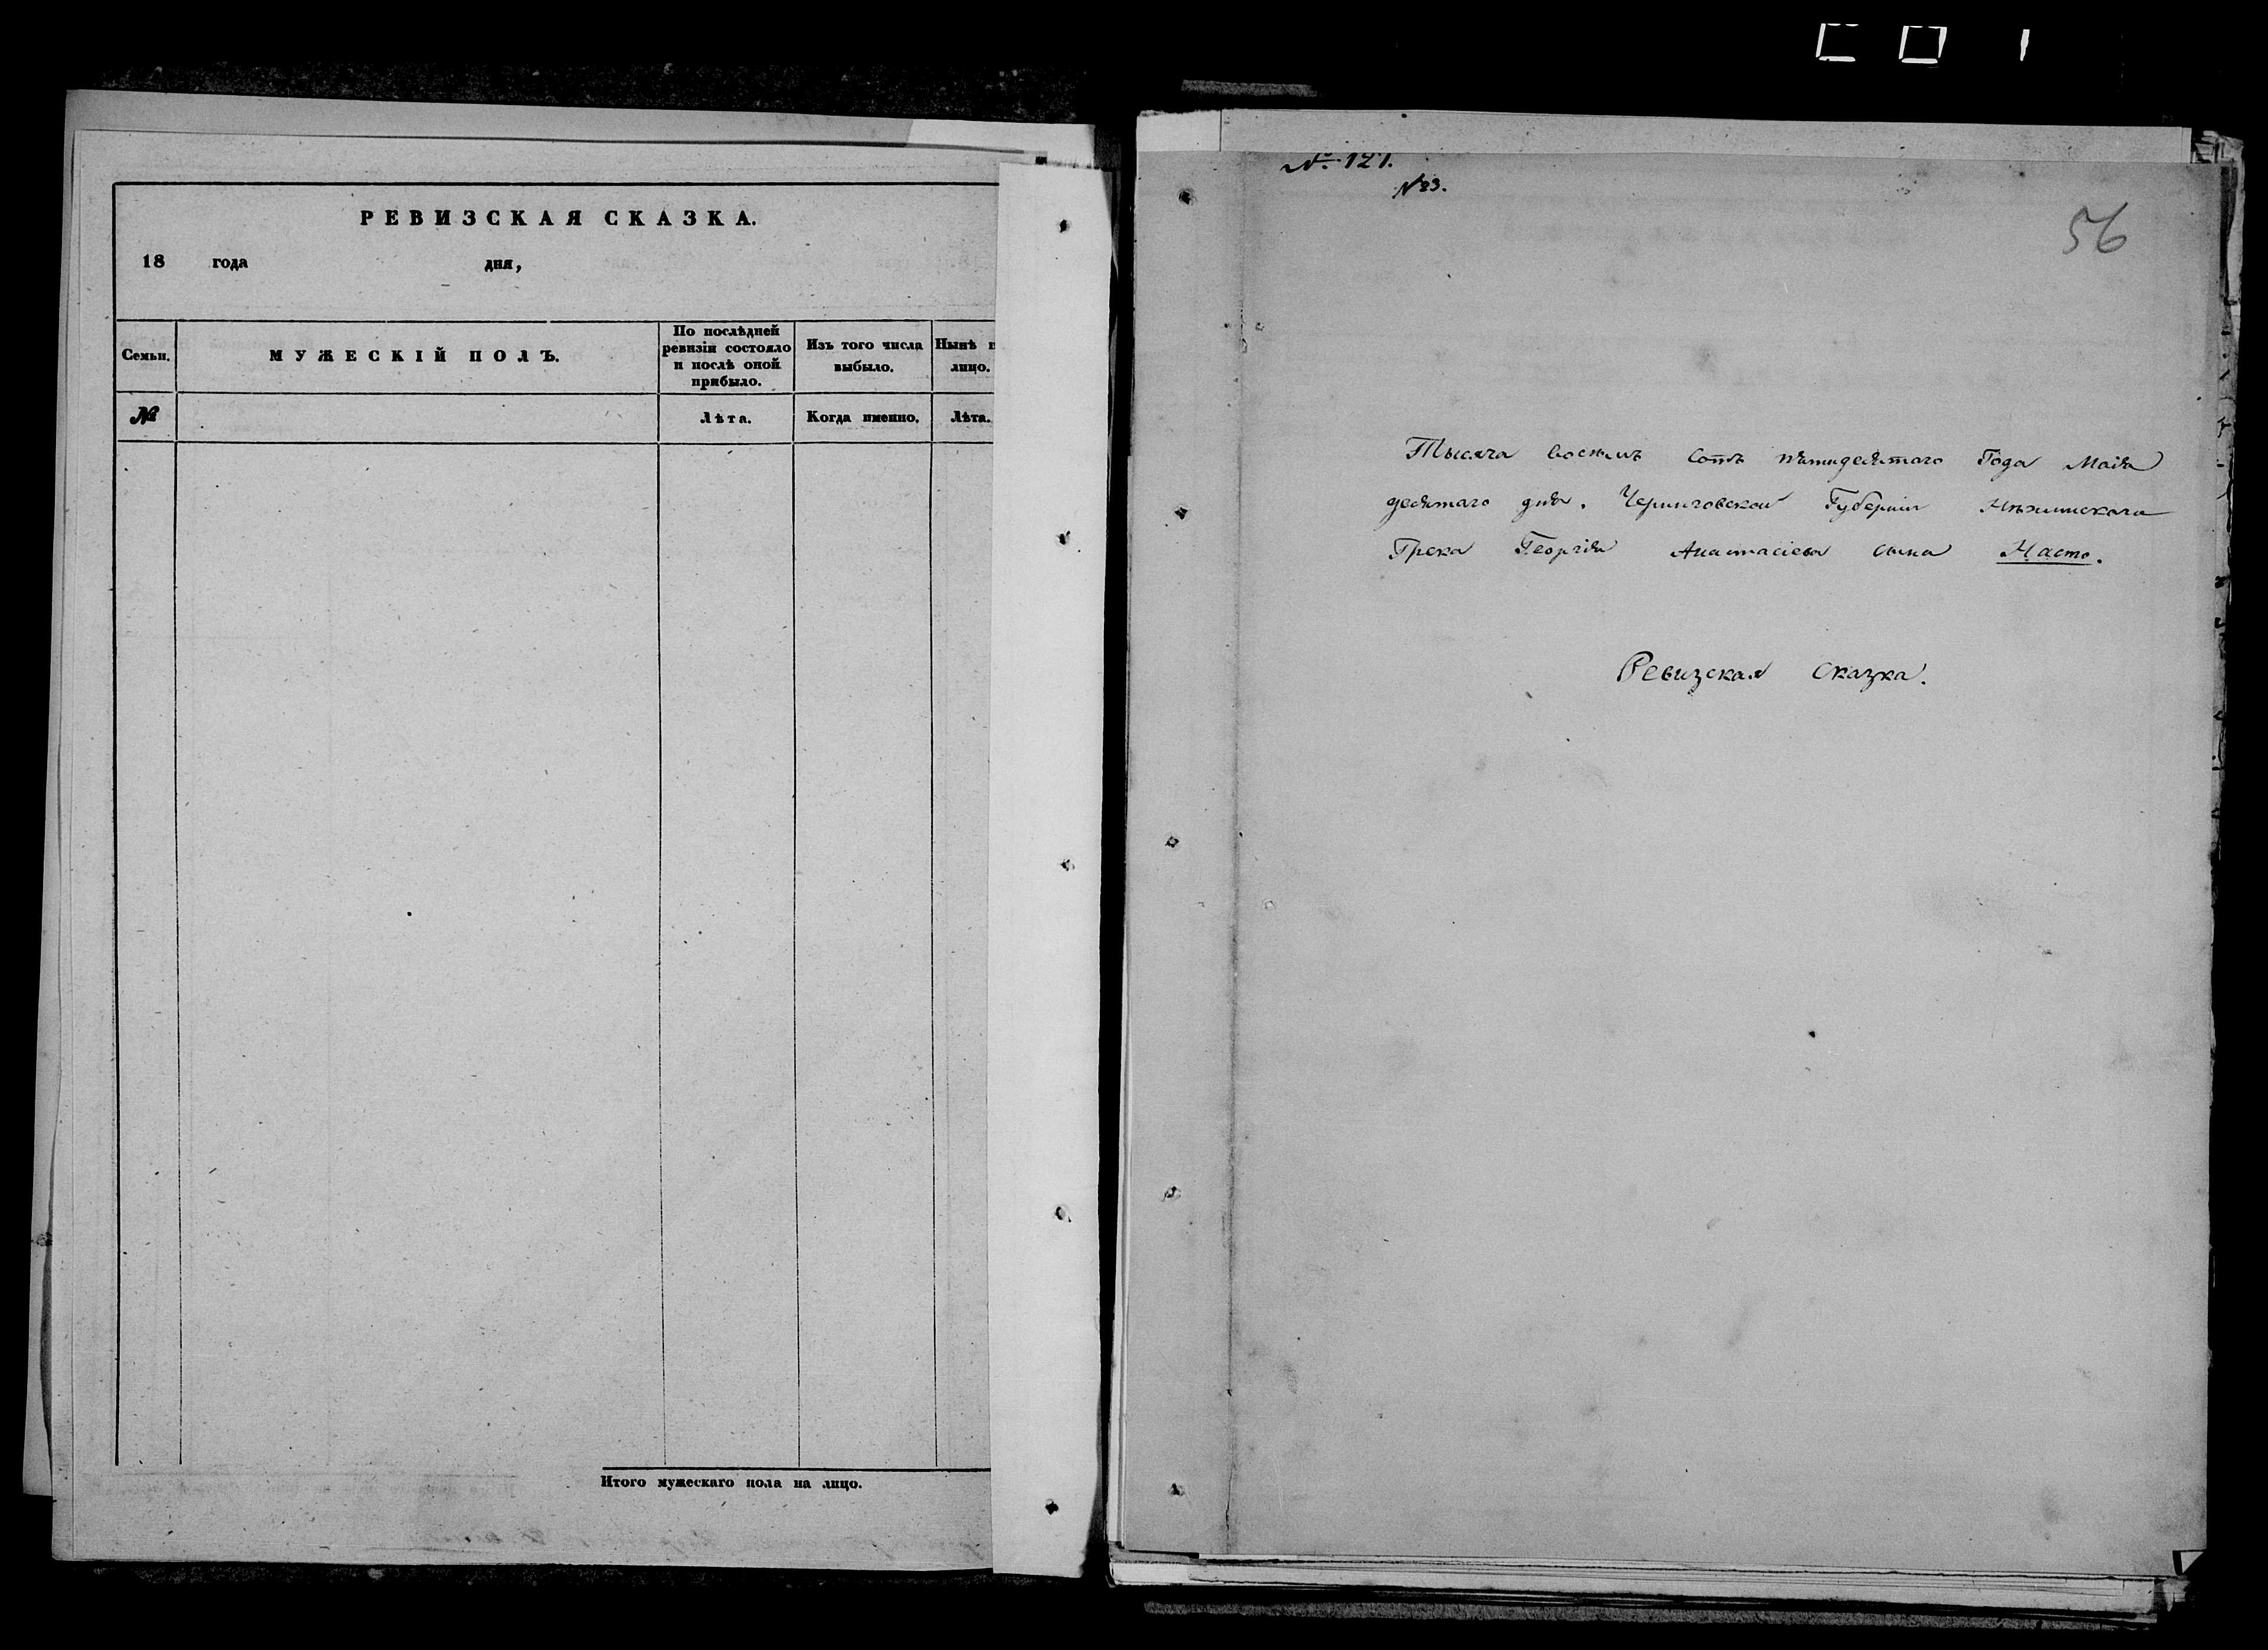 РЕВИЗСКАЯ СКАЗКА.
18 года дня,
Семьи.
МУЖЕСКІЙ ПОЛЪ.
По послѣдней
ревизіи состояло
и послѣ оной
прибыло.
Изъ того числа
выбыло.
Нынѣ н
лицо.
№
Лѣта.
Когда именно.
Лѣта.
Итого мужескаго пола на лицо.
№. 121.
№ 23.
56
Тысяча восемь сотъ пятидесятаго Года Маія
десятаго дня. Черниговской Губерніи Нѣжинскаго
Грека Георгія Анастасіева сына Насто.
Ревизская сказка.